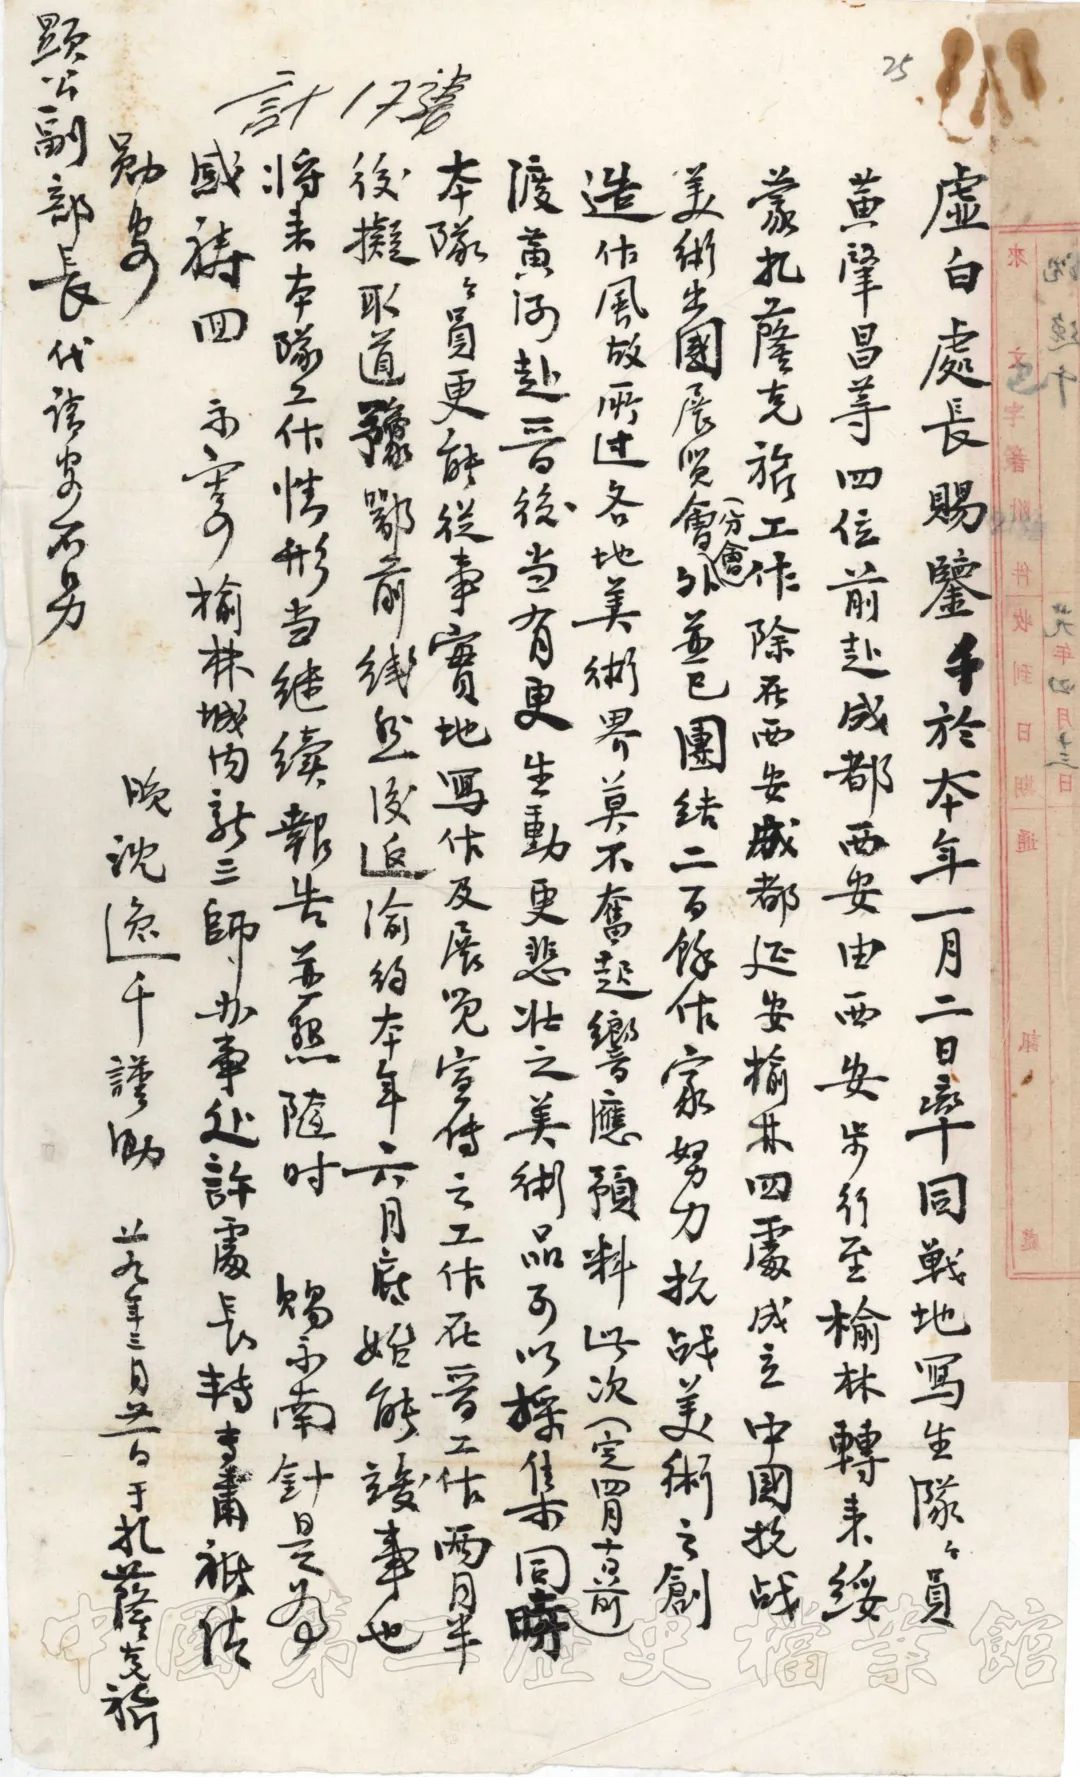 25
虛白處長賜鑒千於本年一月二日率同戰地寫生隊々員
黃肇昌等四位前赴成都西安由西安步行至榆林轉來綏
蒙扎薩克旗工作除在西安成都延安榆林四處成立中國抗战
美術出國展覽會(分會)外並已團結二百餘作家努力抗战美術之創
造作風故所过各地美術界莫不奮起響應預料此次(定四月十日前)
渡黃河赴晉后後当有更生動更悲壯之美術品可以採集同時
本隊々員更能從事實地寫作及展覽宣传之工作在晉工作兩月半
後擬取道豫鄂前綫然後返渝約本年六月底始能竣事也
将来本隊工作情形当继续報告並懇随时 賜示南針是為
感禱回 示寄榆林城内新三師办事处許處長轉專肅祗请
勋安
晚沈逸千謹啟 廿九年三月廿一日于扎薩克旂
顯公副部長代請安不另
計17號
來文字 附件收到日期 通訊處
沈逸千
廿九年四月十三日
中國第二歷史檔案館